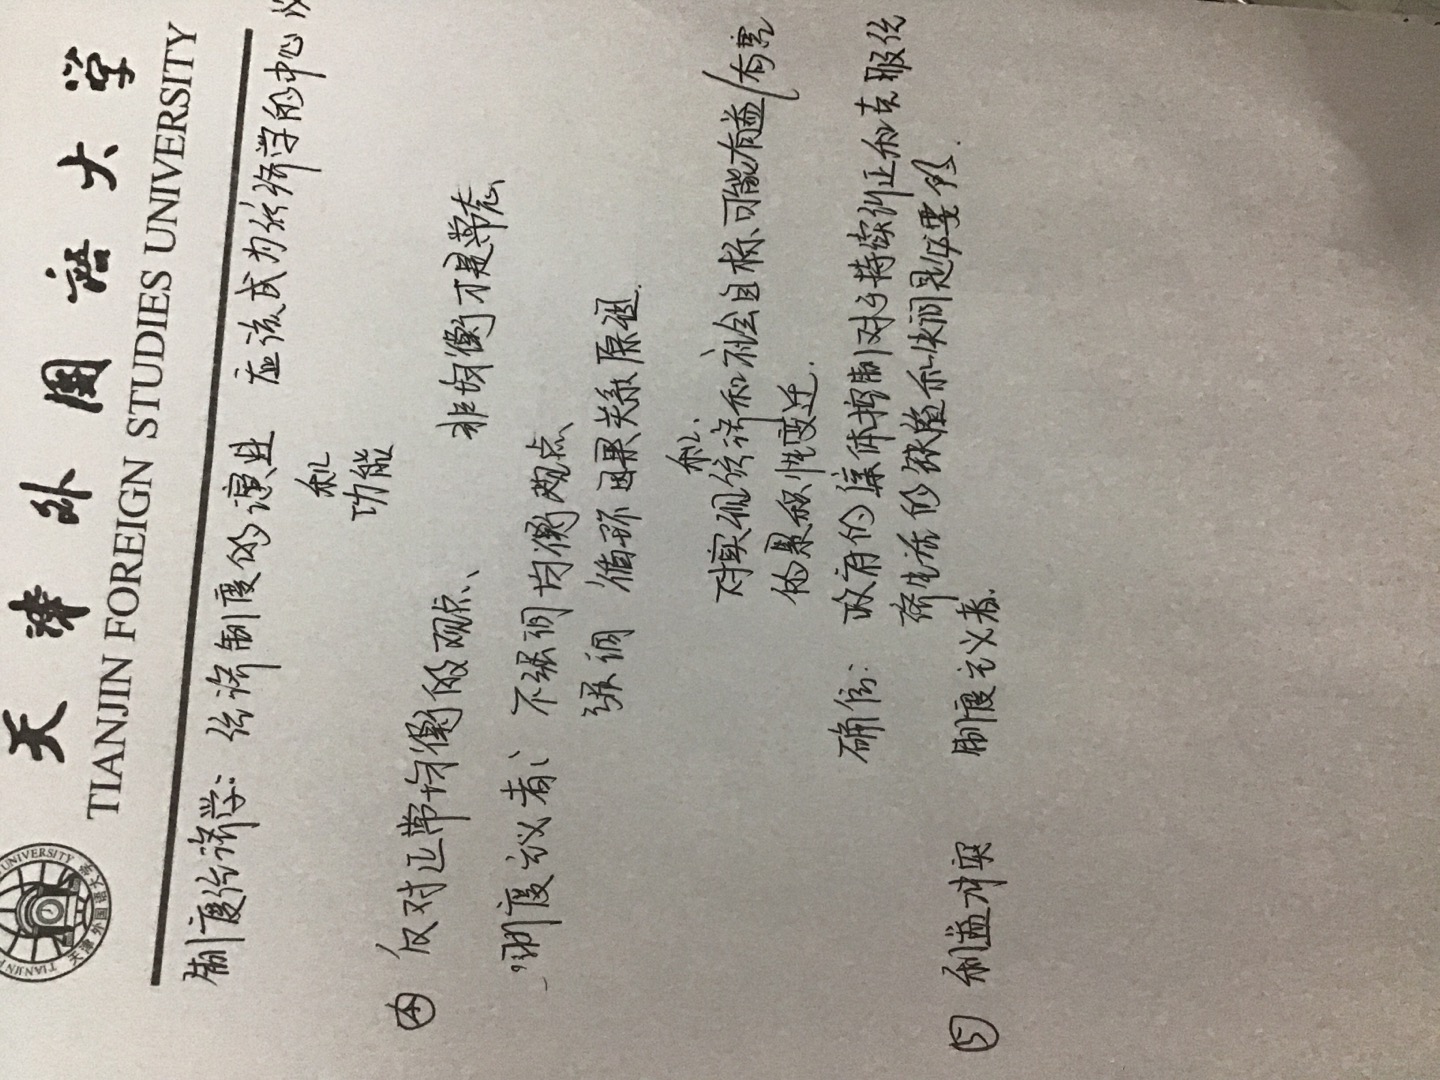 天津外国语大学
TIANJIN FOREIGN STUDIES UNIVERSITY
UNIVERSITY
天津外国语大学
制度经济学：经济制度的演进 应该成为经济学的中心
和
功能
④ 反对正常均衡的观点、 非均衡才是常态
制度主义者、不强调均衡观点
强调 循环因果关系原理.
对实现经济和社会目标、可能有益/有害
和
的累积性变迁.
确信： 政府的集体控制对于持续纠正和克服经
济生活的缺陷和失调是必要的.
⑤ 利益冲突 制度主义者.